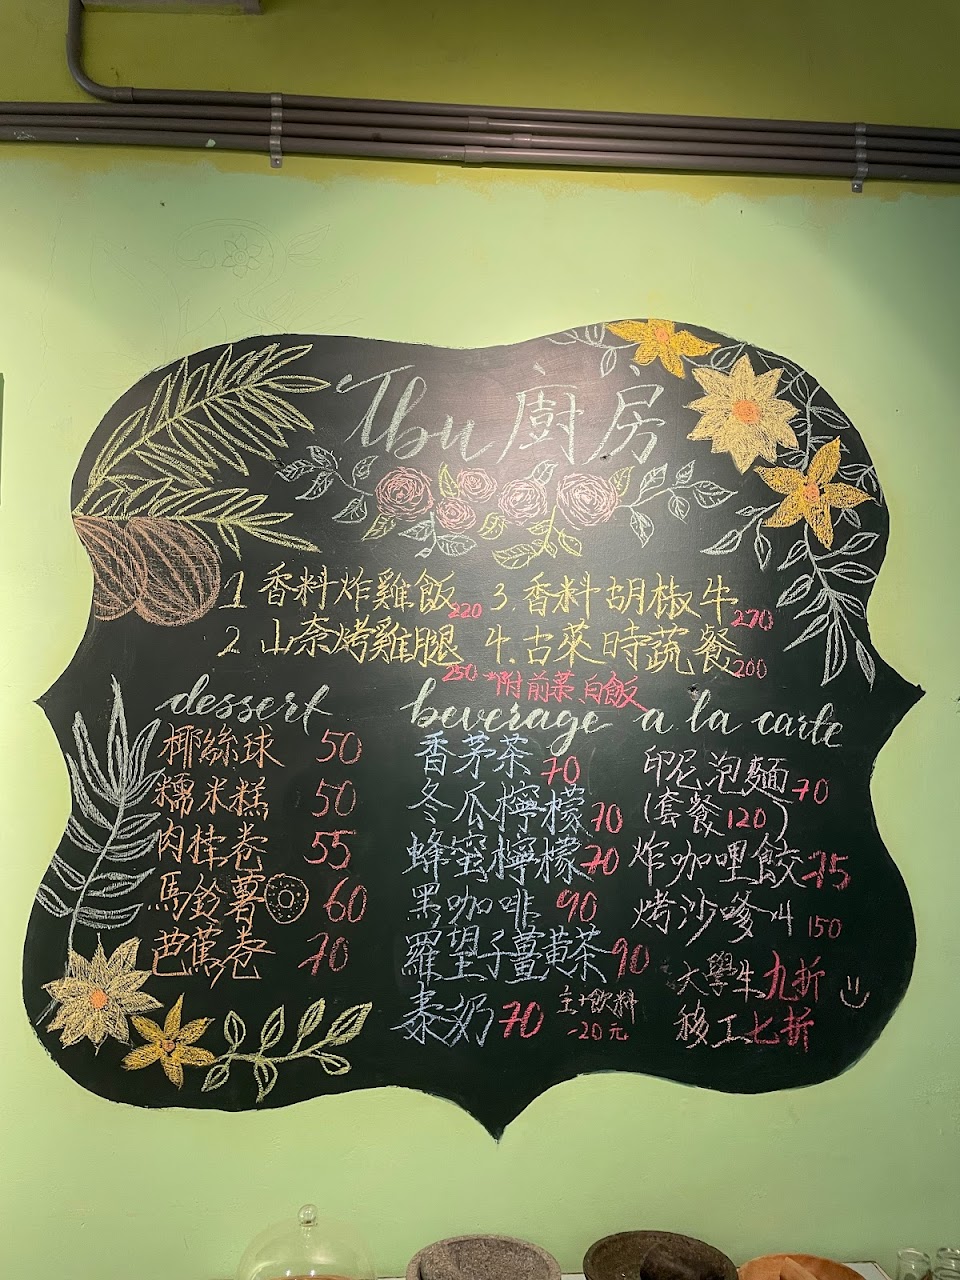 Ibu廚房
1 香料炸雞飯 220
3. 香料胡椒牛 270
2. 山奈烤雞腿 250
4. 古萊時蔬餐 200
*附前菜、白飯
dessert
椰絲球 50
糯米糕 50
肉桂卷 55
馬鈴薯 60
芭蕉卷 70
beverage
香茅茶 70
冬瓜檸檬 70
蜂蜜檸檬 70
黑咖啡 90
羅望子薑黃茶 90
泰奶 70
主+飲料
-20元
a la carte
印尼泡麵 70
(套餐120)
炸咖哩餃 75
烤沙嗲 4 150
大學生九折
移工七折